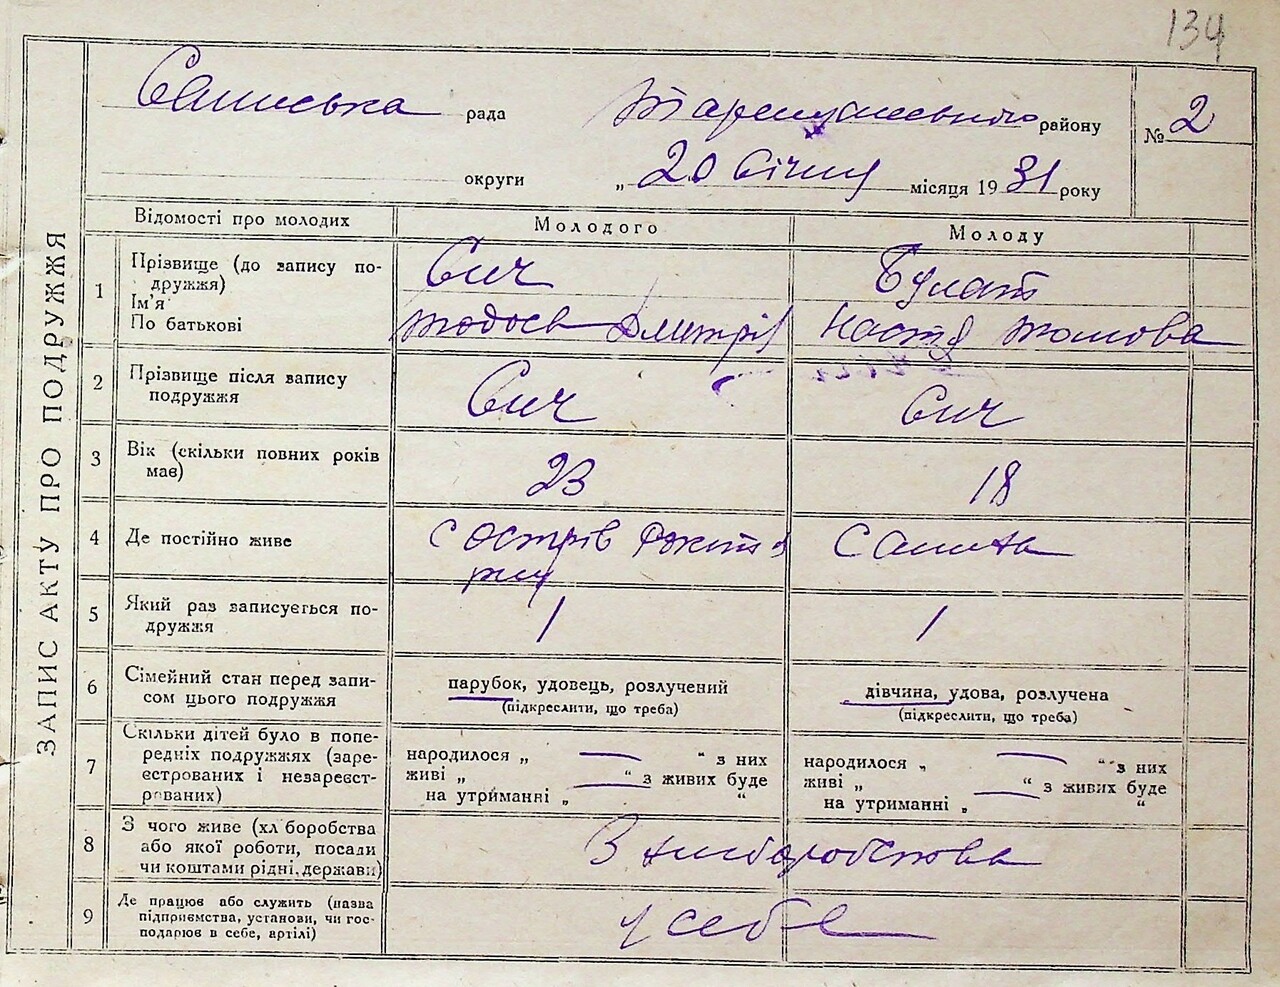 134
Салиська рада Таращанського району № 2
округи „ 20 Січня місяця 1931 року
ЗАПИС АКТУ ПРО ПОДРУЖЖЯ
Відомості про молодих Молодого Молоду
1 Прізвище (до запису по- Сич Булат
дружжя)
Ім'я
По батькові Тодось Дмитрів Настя Томова
2 Прізвище після запису Сич Сич
подружжя
3 Вік (скільки повних років 23 18
мав)
4 Де постійно живе с Острів Рокит с
рну
5 Який раз записується по- 1 1
дружжя
6 Сімейний стан перед запи- парубок, удовець, розлучений дівчина, удова, розлучена
сом цього подружжя (підкреслити, що треба) (підкреслити, що треба)
7 Скільки дітей було в попе- народилося „ — “ з них народилося „ — “ з них
редніх подружжях (заре- живі „ — “ з живих буде живі „ — “ з живих буде
єстрованих і незареєст- на утриманні „ “ на утриманні „ “
рованих)
8 З чого живе (хліборобства
або якої роботи, посади З хліборобства
чи коштами рідні, держави)
9 Де працює або служить (назва
підприємства, установи, чи гос- у себе
подарює в себе, артілі)